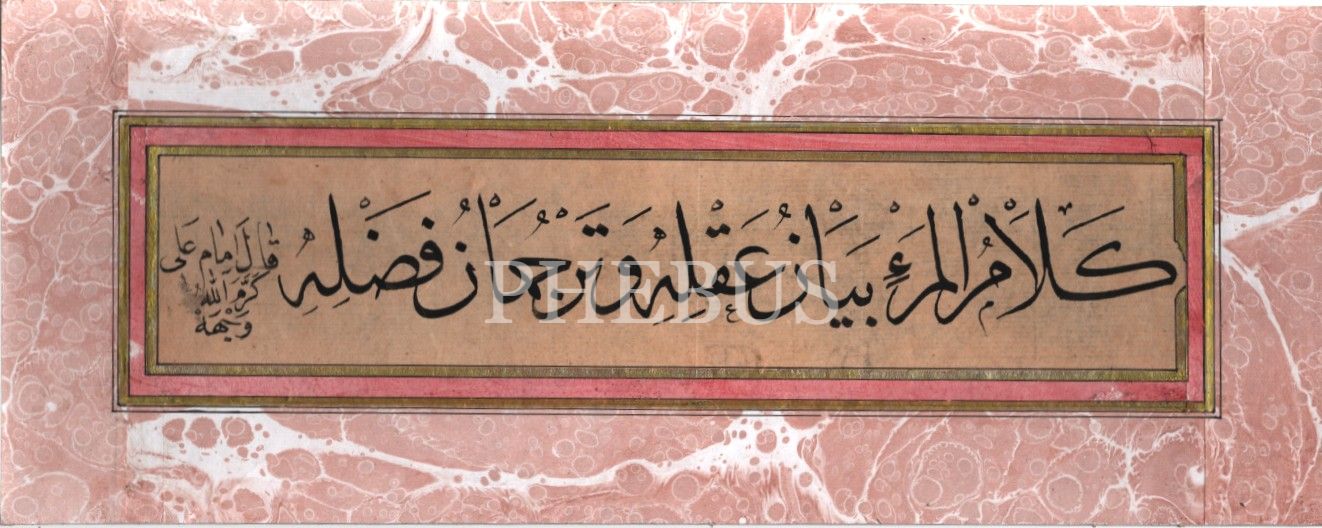 كَلَامُ الْمَرْءِ بَيَانُ عَقْلِهِ وَتَرْجُمَانُ فَضْلِهِ
قال امام علی
كرم الله
وجهه
PHEBUS